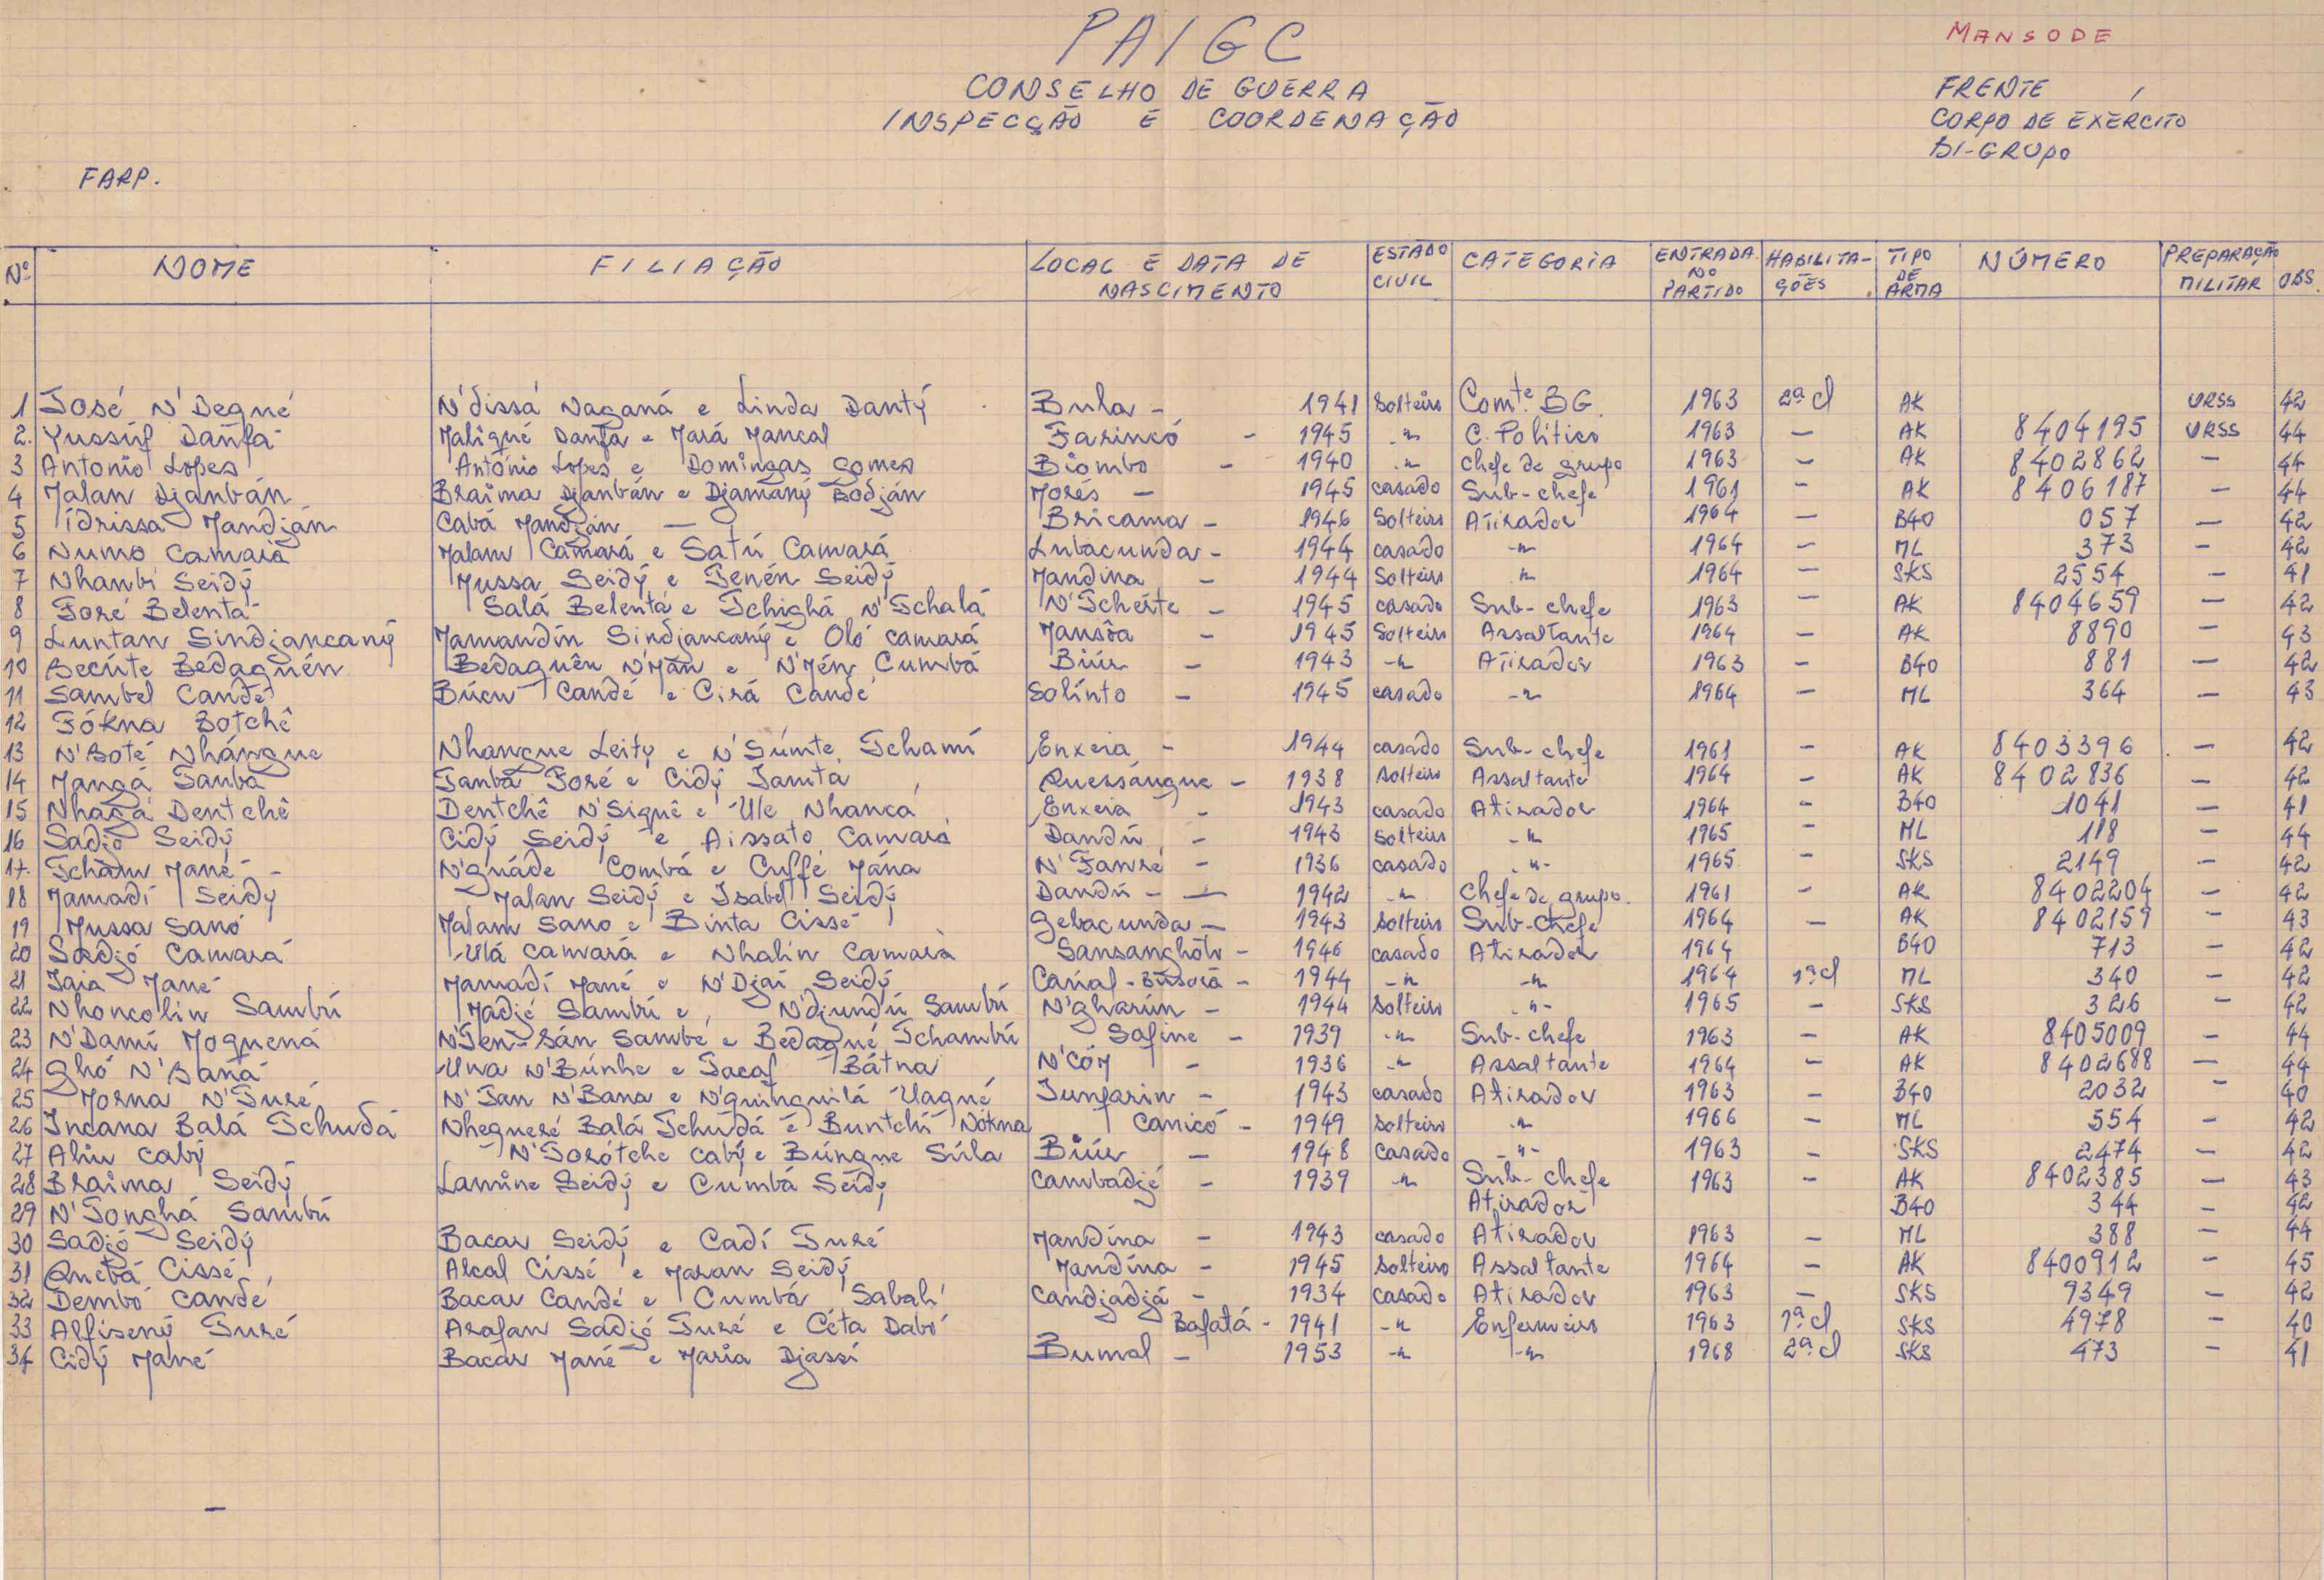 PAIGC
MANSODE
CONSELHO DE GUERRA
INSPECÇÃO E COORDENAÇÃO
FRENTE
CORPO DE EXÉRCITO
BI-GRUPO
FARP.
Nº NOME FILIAÇÃO LOCAL E DATA DE NASCIMENTO ESTADO CIVIL CATEGORIA ENTRADA NO PARTIDO HABILITAÇÕES TIPO DE ARMA NÚMERO PREPARAÇÃO MILITAR OBS.
1 José N'Degné N'dissá Naganá e Linda Dantý Bula - 1941 Solteiro Comte. BG. 1963 2ª cl AK URSS 42
2. Yussúf Danfá Maligné Danfá e Mará Mancal Farincó - 1945 -"- C. Político 1963 - AK 8404195 URSS 44
3 Antonio Lopes António Lopes e Domingas Gomes Biombo - 1940 -"- Chefe de grupo 1963 - AK 8402862 - 44
4 Malan Djanbán Braima Djanbán e Djamaný Bodján Morés - 1945 casado Sub-chefe 1961 - AK 8406187 - 44
5 Ídrissa Mandján Cabá Mandján - Bricama - 1946 Solteiro Atirador 1964 - B40 057 - 42
6 Numo Camará Malam Camará e Satú Camará Lubacunda - 1944 casado -"- 1964 - ML 373 - 42
7 Nhambi Seidý Mussa Seidý e Fenén Seidý Mandina - 1944 Solteiro -"- 1964 - SKS 2554 - 41
8 Foré Belenta Salá Belenta e Tchighá N'Tchalá N'Tcherte - 1945 casado Sub-chefe 1963 - AK 8404659 - 42
9 Luntan Sindjancaný Mamandín Sindjancaný e Oló camará Mansôa - 1945 Solteiro Assaltante 1964 - AK 8890 - 43
10 Becúte Bedagnén Bedagnên N'Man e N'Mén Cumbá Biúr - 1943 -"- Atirador 1963 - B40 881 - 42
11 Sambel Candé Búcu Candé e Cirá Candé Solinto - 1945 casado -"- 1964 - ML 364 - 43
12 Fókna Botchê
13 N'Boté Nhángue Nhangue Leitý e N'Súmte Tchamí Enxeia - 1944 casado Sub-chefe 1961 - AK 8403396 - 42
14 Mangá Tanbá Tanbá Foré e Cidý Jamta Quersángue - 1938 Solteiro Assaltante 1964 - AK 8402836 - 42
15 Nhagá Dentchê Dentchê N'Signê e Ule Nhancá Enxeia - 1943 casado Atirador 1964 - B40 1041 - 41
16 Sadjó Seidý Cidý Seidý e Aissato Camará Dandú - 1943 Solteiro -"- 1965 - ML 118 - 44
17. Tcham Mané N'gnáde Combá e Cuffé Mána N'Fanré - 1936 casado -"- 1965 - SKS 2149 - 42
18 Mamadí Seidý Malan Seidý e Isabel Seidý Dandú - 1942 -"- Chefe de grupo. 1961 - AK 8402204 - 42
19 Mussa Sanó Malam Sano e Binta Cissé Gebacunda - 1943 Solteiro Sub-Chefe 1964 - AK 8402159 - 43
20 Sadjó Camará Ulá Camará e Nhalin Camará Sansanghôto - 1946 casado Atirador 1964 B40 713 - 42
21 Iaia Mané Mamadí Mané e N'Djai Seidý 1944 -"- -"- 1964 1ª cl ML 340 - 42
22 Nhoncolin Sambú Madjé Sambú e N'djundú Sambú N'gharún - 1944 Solteiro -"- 1965 - SKS 326 - 42
23 N'Damí Moguená N'Ten-Sán Sambé e Bedagné Tchambú Safine - 1939 -"- Sub-chefe 1963 - AK 8405009 - 44
24 Ghó N'Bana Una N'Búnhe e Jacaf Bátna N'Cóm - 1936 -"- Assaltante 1964 - AK 8402688 - 44
25 Morna N'Turé N'Tan N'Bana e N'quinquilá Uagné Junfarin - 1943 casado Atirador 1963 - B40 2032 - 40
26 Incana Balá Tchudá Nhegneré Balá Tchúdá e Buntchí Nótna Canicó - 1949 Solteiro -"- 1966 - ML 554 - 42
27 Aliu cabý N'Torótche cabý e Búngue Síla Biúr - 1948 Casado -"- 1963 - SKS 2474 - 42
28 Braima Seidý Lamine Seidý e Cumbá Seidý Cambadjé - 1939 -"- Sub-chefe 1963 - AK 8402385 - 43
29 N'Tonghá Sambú Atirador B40 344 - 42
30 Sadjó Seidý Bacar Seidý e Cadí Turé Mandina - 1943 casado Atirador 1963 - ML 388 - 44
31 Quebá Cissé Alcal Cissé e Maran Seidý Mandina - 1945 Solteiro Assaltante 1964 - AK 8400912 - 45
32 Dembó Candé Bacar Candé e Cumbá Sabalí Candjadjá - 1934 casado Atirador 1963 - SKS 9349 - 42
33 Alfisený Turé Arafan Sadjó Turé e Céta Dabó Bafatá - 1941 -"- Enfermeiro 1963 1ª cl SKS 4978 - 40
34 Cidý Mané Bacar Mané e Maria Djassi Bumal - 1953 -"- -"- 1968 2ª cl SKS 473 - 41